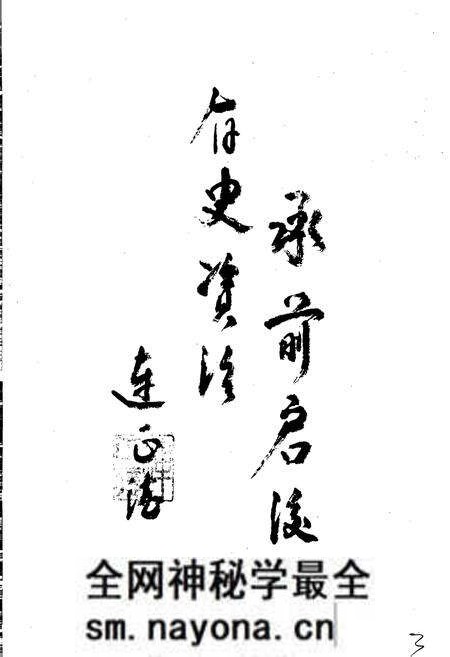 承前启后
存史资治
连正
全网神秘学最全
sm.nayona.cn
3